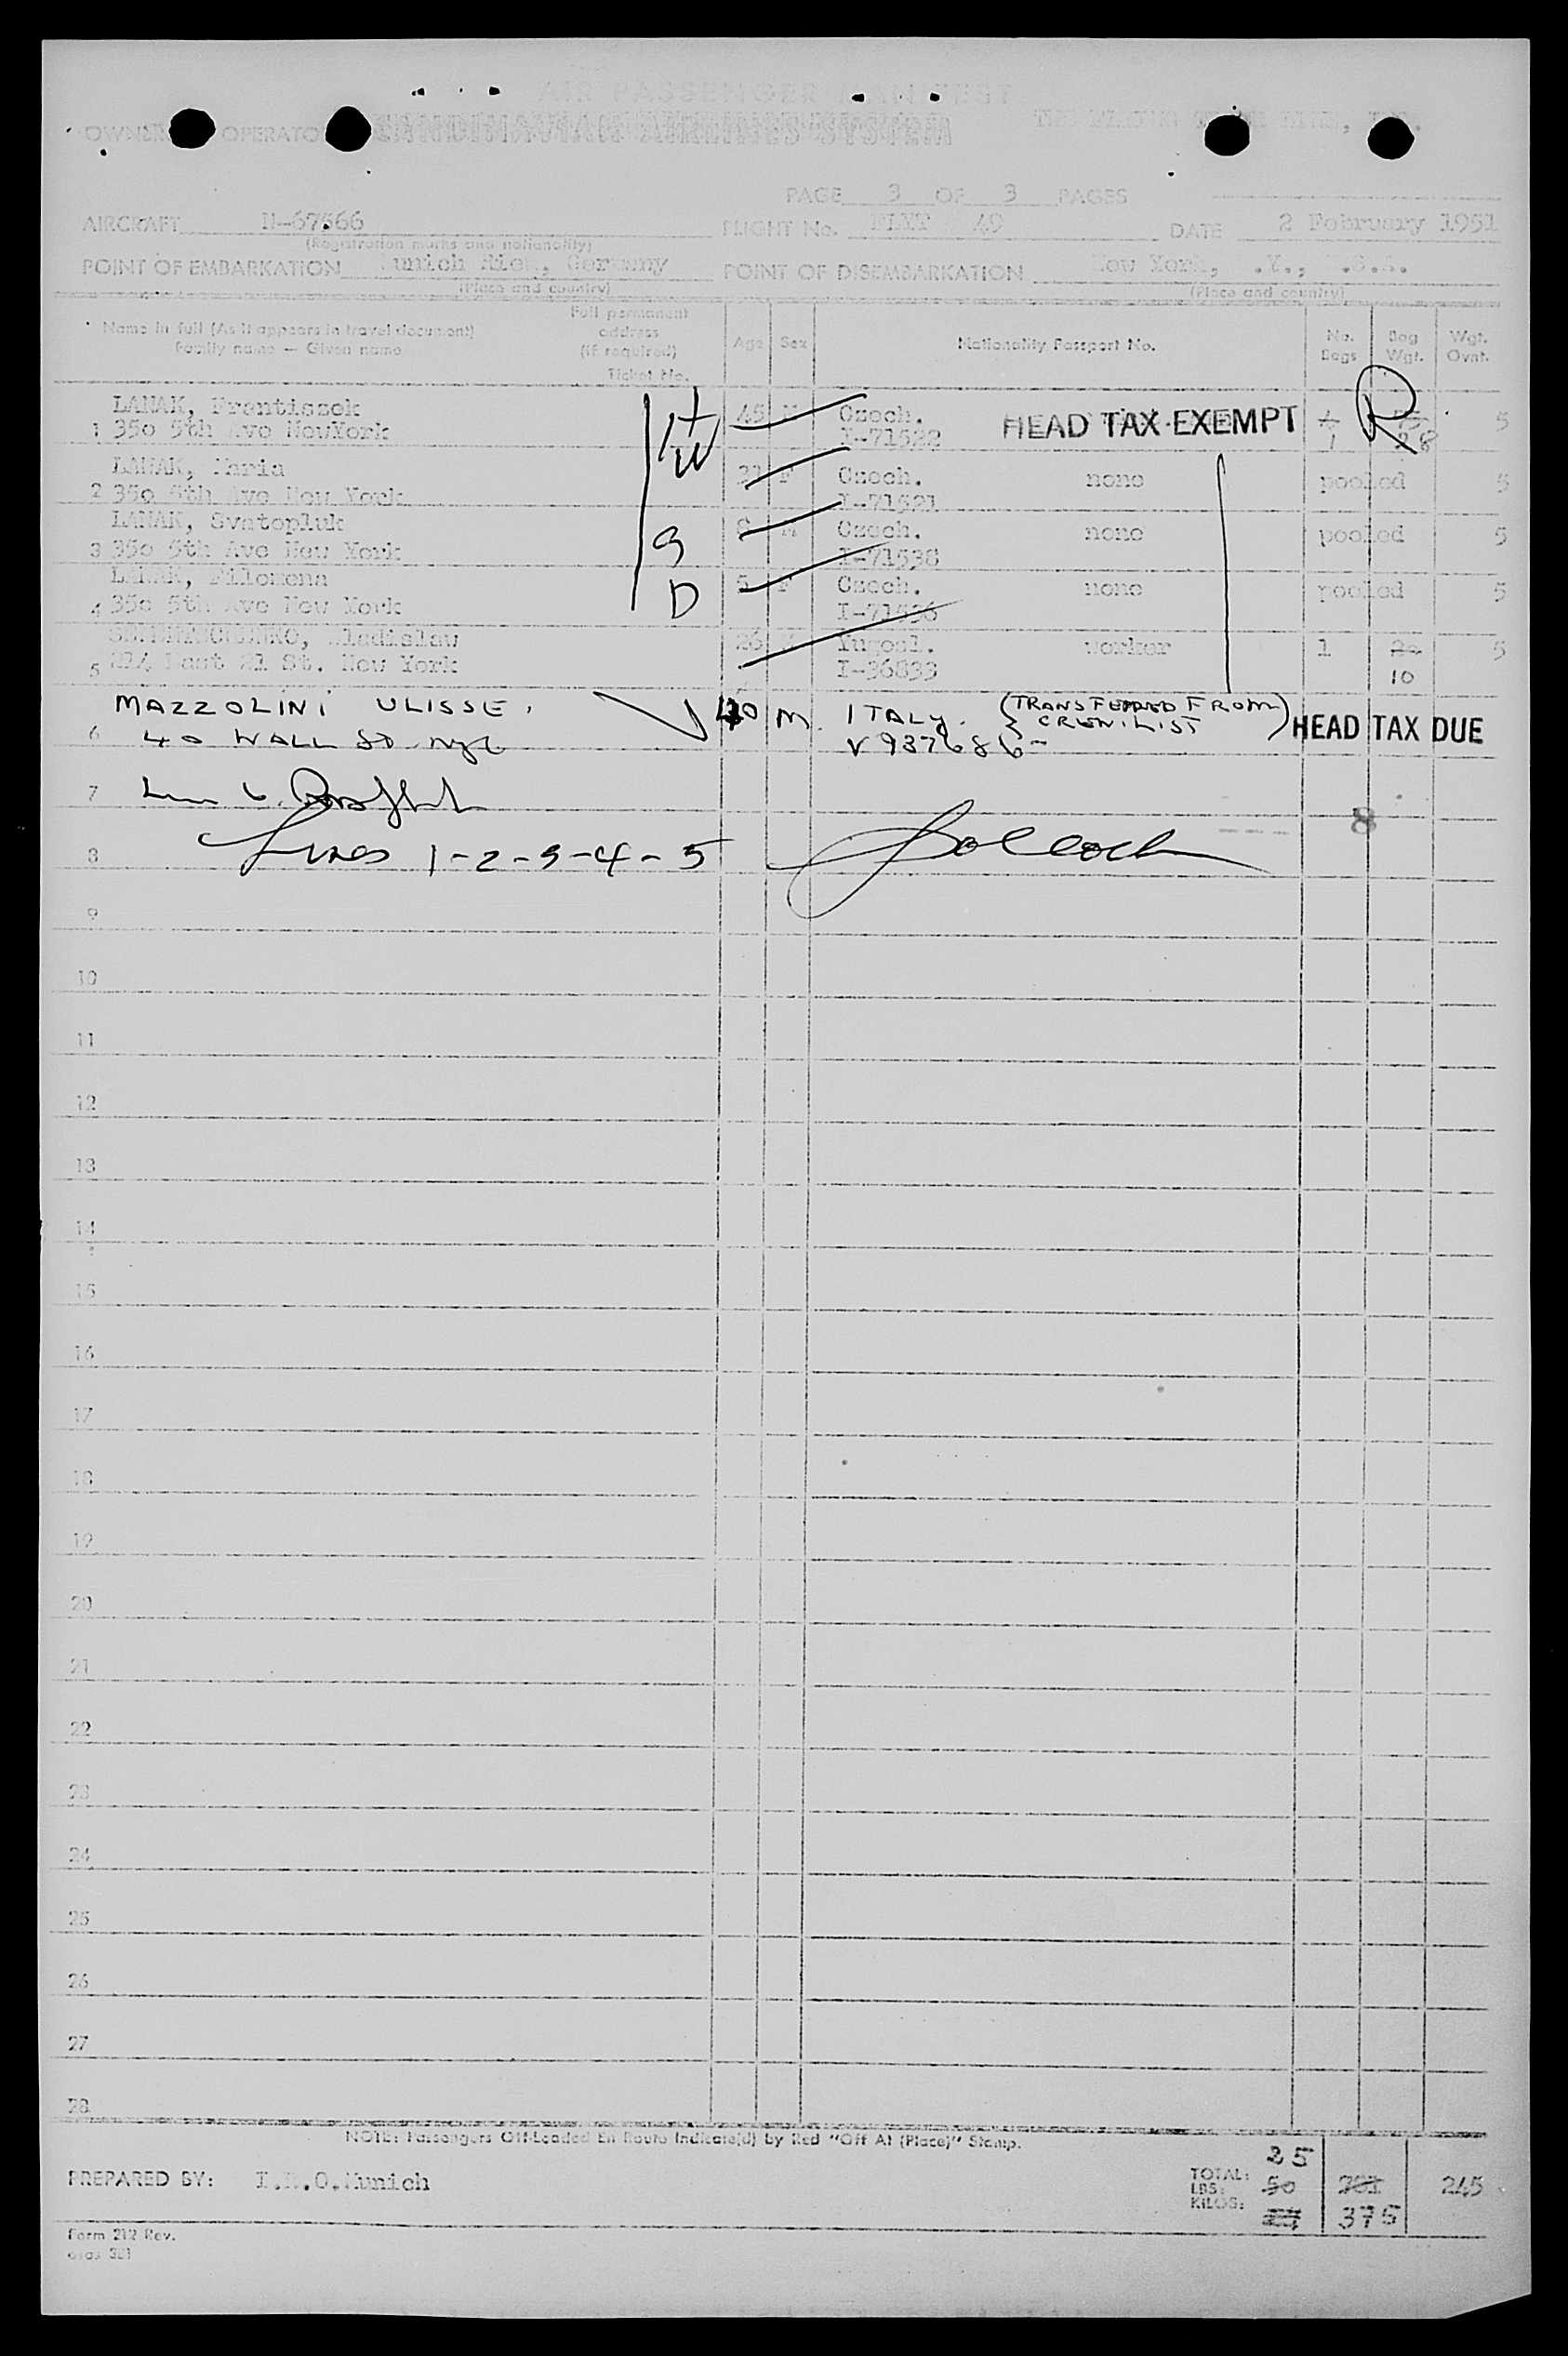 AIR PASSENGER MANIFEST
OWNER OPERATOR SCANDINAVIAN AIRLINES SYSTEM
PAGE 3 OF 3 PAGES
AIRCRAFT N-67566 FLIGHT No. 49 DATE 2 February 1951
(Registration marks and nationality)
POINT OF EMBARKATION Munich Riem, Germany POINT OF DISEMBARKATION New York, N.Y., U.S.A.
(Place and country) (Place and country)
Name in full (As it appears in travel document)
Family name — Given name
Full permanent
address
(if required)
Ticket No.
Age Sex Nationality Passport No. No. Bags Bag Wgt. Wgt. Ovnt.
LANAK, Frantiszek H 45 M Czech. HEAD TAX EXEMPT R 5
1 350 5th Ave NewYork W I-71522 1 28
LANAK, Maria F Czech. none pooled 5
2 350 5th Ave New York I-71521
LANAK, Svatopluk S 8 M Czech. none pooled 5
3 350 5th Ave New York I-71538
LANAK, Filomena D 5 F Czech. none pooled 5
4 350 5th Ave New York I-71536
26 Yugosl. worker 1 20 5
5 214 East 21 St. New York I-36833 10
MAZZOLINI ULISSE. 40 M. ITALY. (TRANSFERRED FROM
CREW LIST) HEAD TAX DUE
6 40 WALL ST NYC V 937686-
7
8
8 Lines 1-2-3-4-5
9
10
11
12
13
14
15
16
17
18
19
20
21
22
23
24
25
26
27
28
NOTE: Passengers Off-Loaded En Route Indicate(d) by Red "Off At (Place)" Stamp.
PREPARED BY: I.R.O.Munich
TOTAL: 25
LBS: 50 245
KILOS: 375
Form 212 Rev.